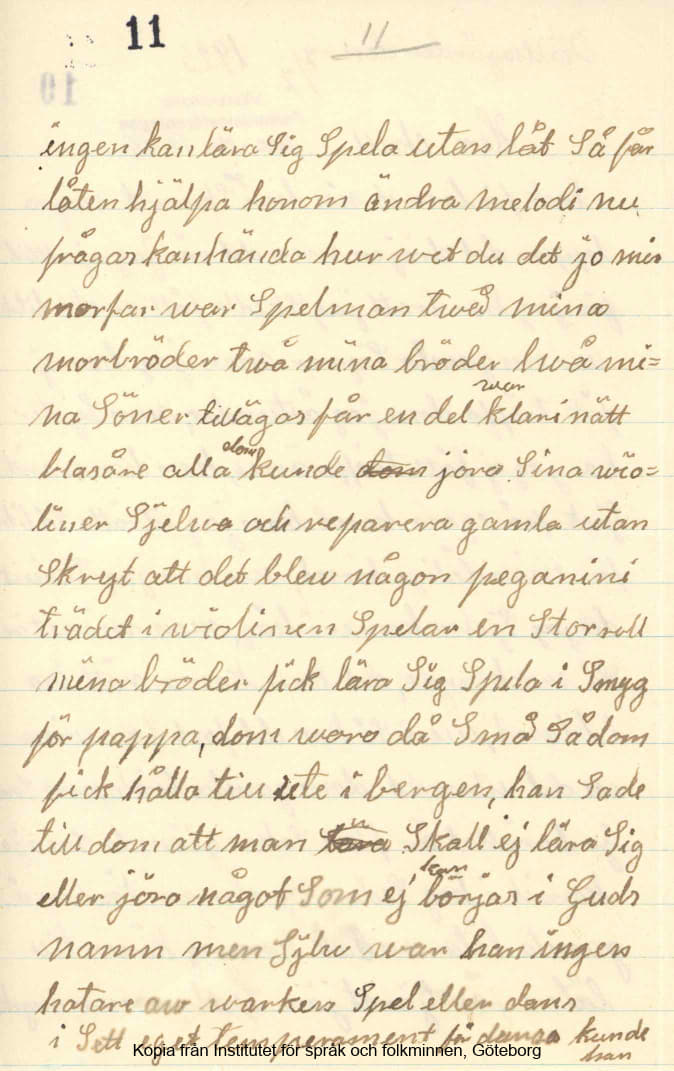 11
11
ingen kan lära Sig Spela utan låt Så får
låten hjälpa honom ändra melodi nu
frågas kanhända hur wet du det jo min
morfar war Spelman twå mina
morbröder twå mina bröder twå mi=
na Söner tillägas får en del war klarinätt
blasåre alla dom kunde dom jöra Sina wio=
liner Sjelwa och reparera gamla utan
Skryt att det blew någon peganini
trädet i wiolinen Spelar en Stor roll
mina bröder fick lära Sig Spela i Smyg
för pappa, dom waro då Små Så dom
fick hålla till ute i bergen, han Sade
till dom att man Skall ej lära Sig
eller jöra något Som ej kan börjas i Guds
namn men Sjelw war han ingen
hatare aw warken Spel eller dans
i Sett eget temperament för dansa kunde
han
Kopia från Institutet för språk och folkminnen, Göteborg